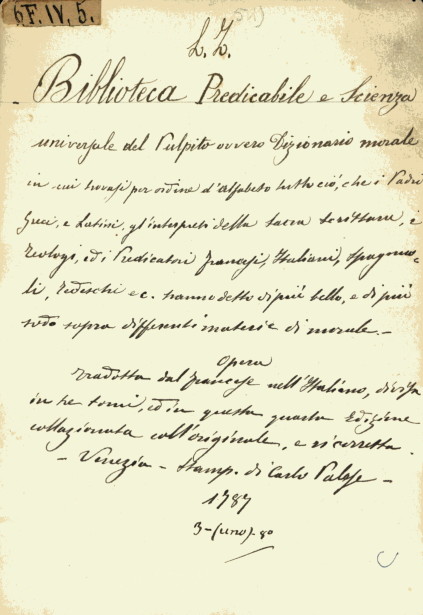 6F.IV.5.
L.Z.
Biblioteca Predicabile e Scienza
universale del Pulpito ovvero Dizionario morale
in cui trovasi per ordine d'alfabeto tutto ciò, che i Padri
Greci, e Latini, gl'interpreti della sacra scrittura, i
Teologi, ed i Predicatori francesi, Italiani, Spagnuo-
li, Tedeschi ec. hanno detto di più bello, e di più
sodo sopra differenti materie di morale.-
Opera
Tradotta dal francese nell'Italiano, divisa
in tre tomi, ed in questa quarta Edizione
collazionata coll'originale, e ricorretta.
- Venezia - Stamp. di Carlo Palese -
1787
3-(uno)-8°